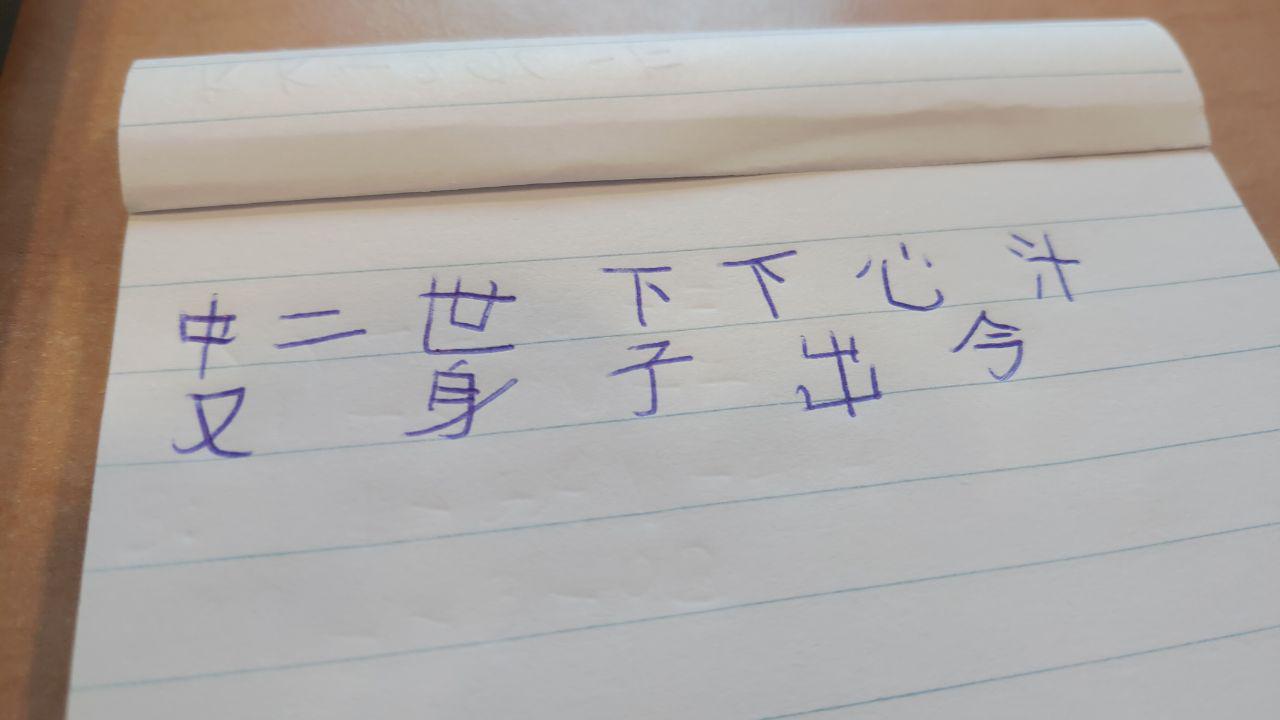 中二世下下心汁
又身子出今